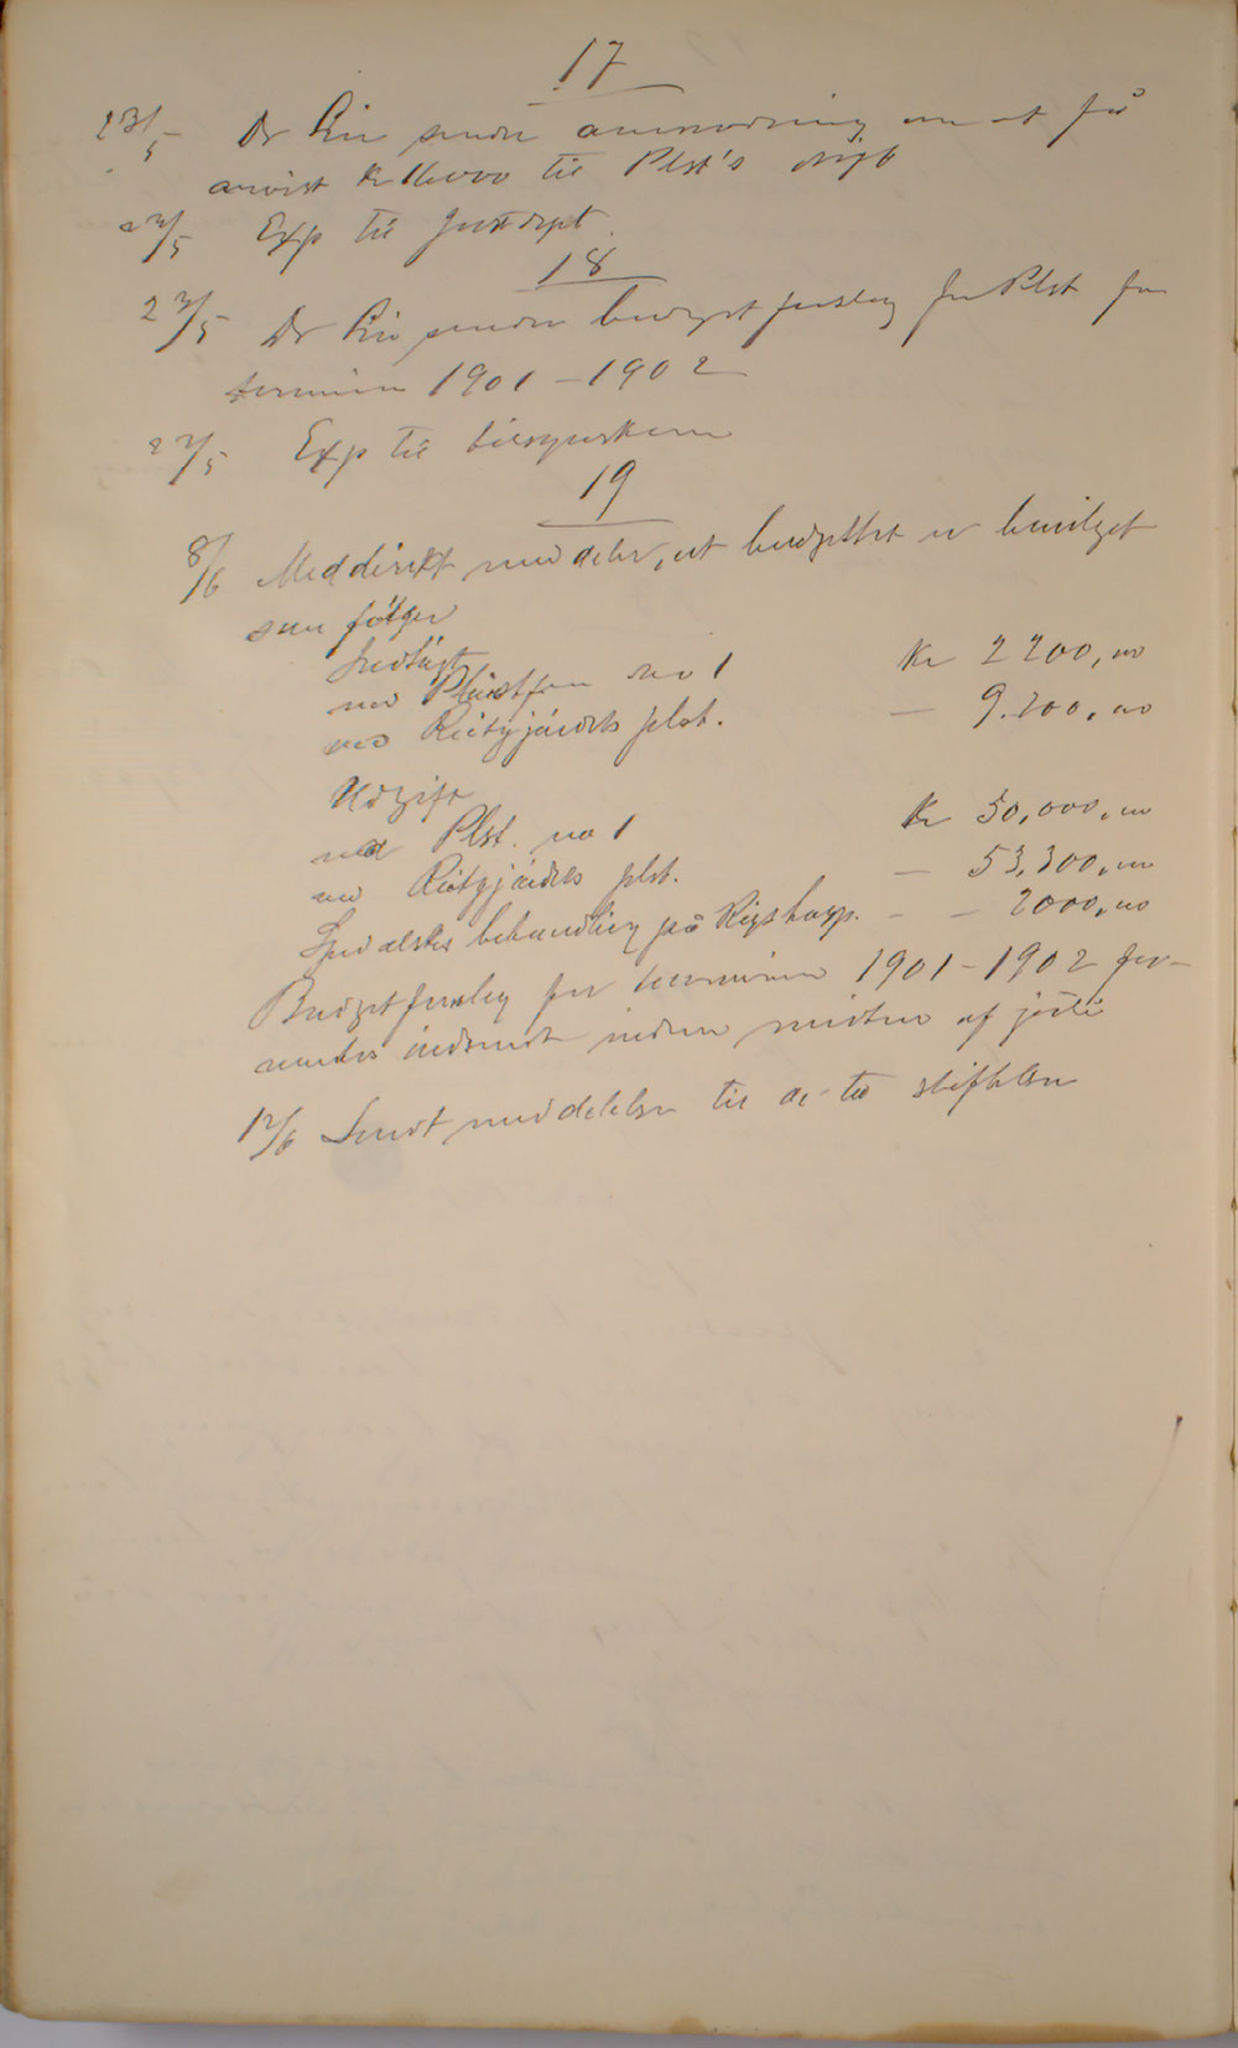 17
23/5 Dr Lie sender anmodning om at få
anvist Kr 16000 til Plst's drift
23/5 Exp til Justdept.
18
23/5 Dr Lie sender budgetforslag for Plst for
terminen 1901-1902
27/5 Exp til tilsynskom
19
8/6 Meddirekt meddeler, at budgettet er bevilget
som følger
Indtægt
ved Pleiestiftn no 1 Kr 2200,00
ved Reitgjærdets plst. — 9.200,00
Udgift
ved Plst. no 1 Kr 50,000,00
ved Reitgjærdets plst. — 53,300,00
Spedalskes behandling på Rigshosp. - — 2000,00
Budgetforslag for terminen 1901-1902 for-
ventes indsendt inden midten af juli
12/6 Sendt meddelelse til de to stiftelser